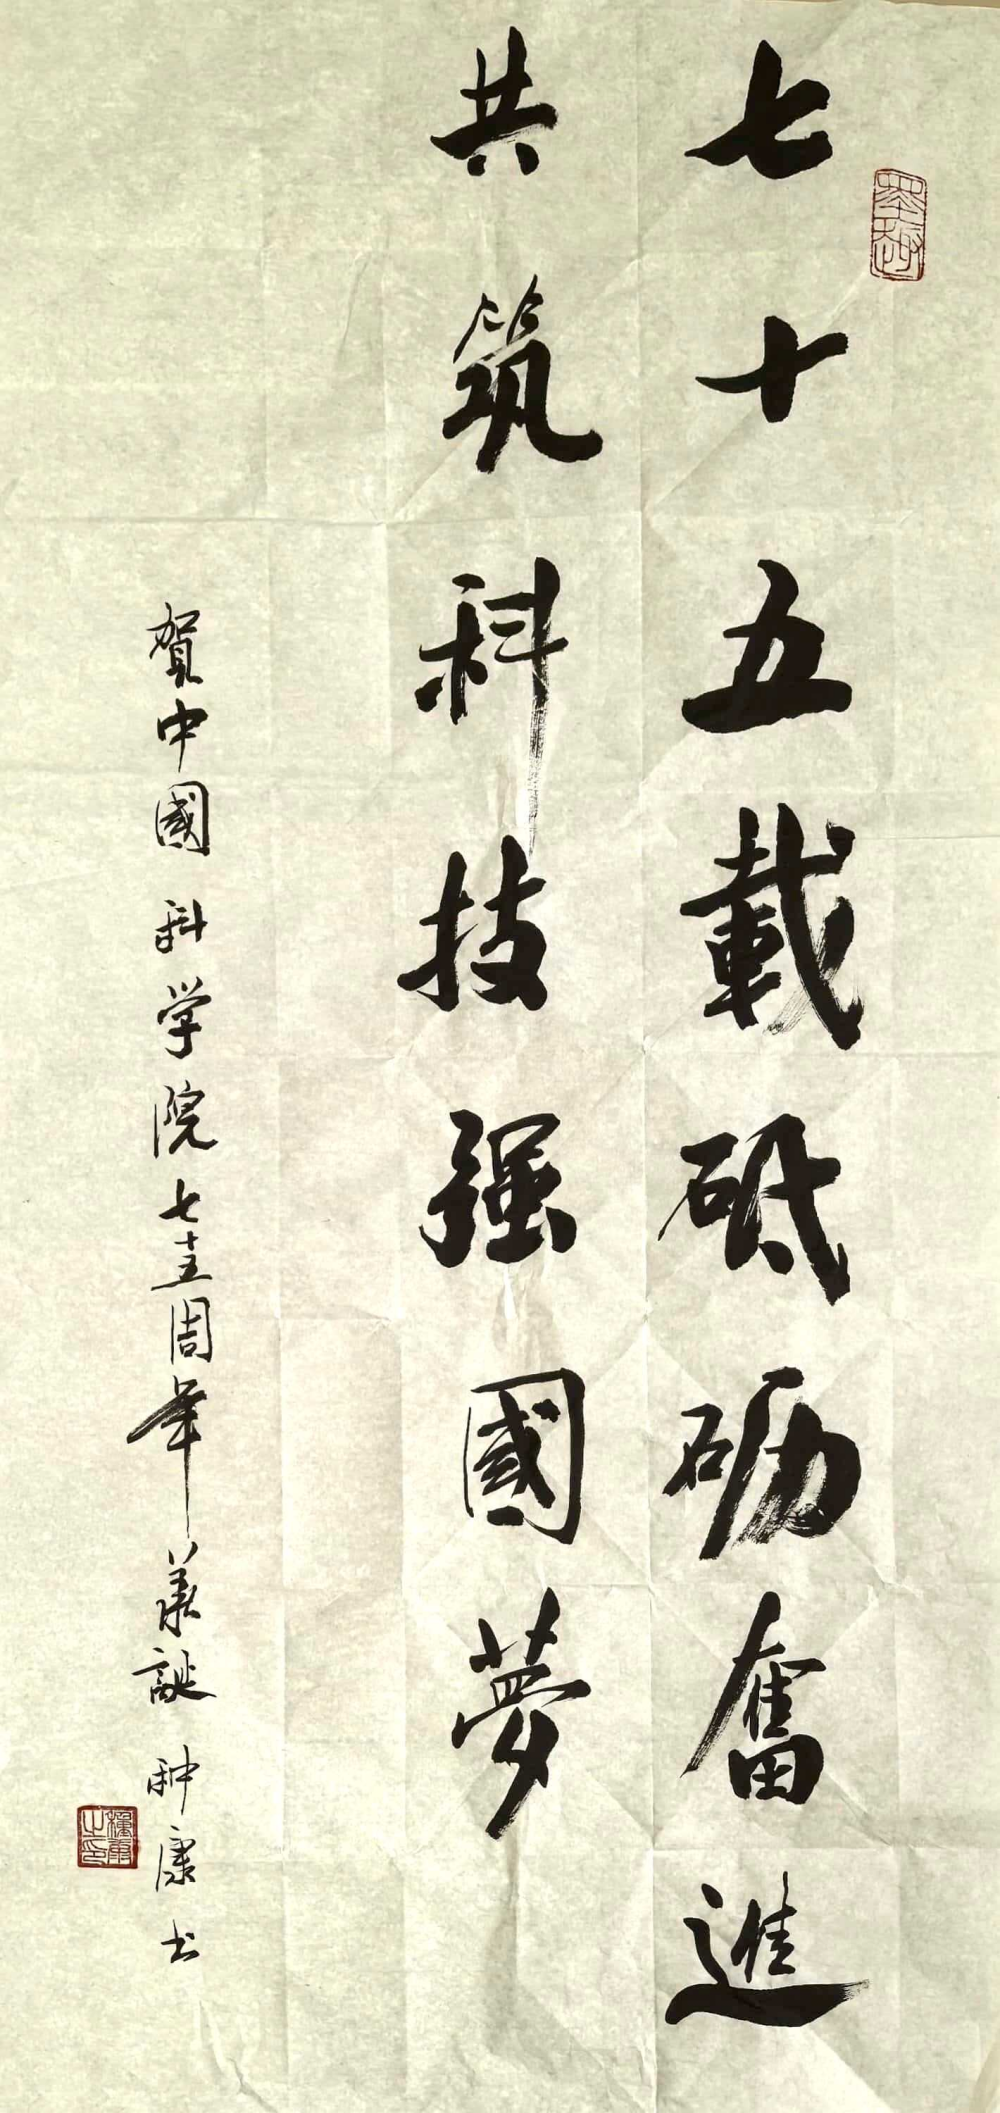 七十五載砥砺奮進
共筑科技强國夢
賀中國科学院七十五周年華誕 种康书